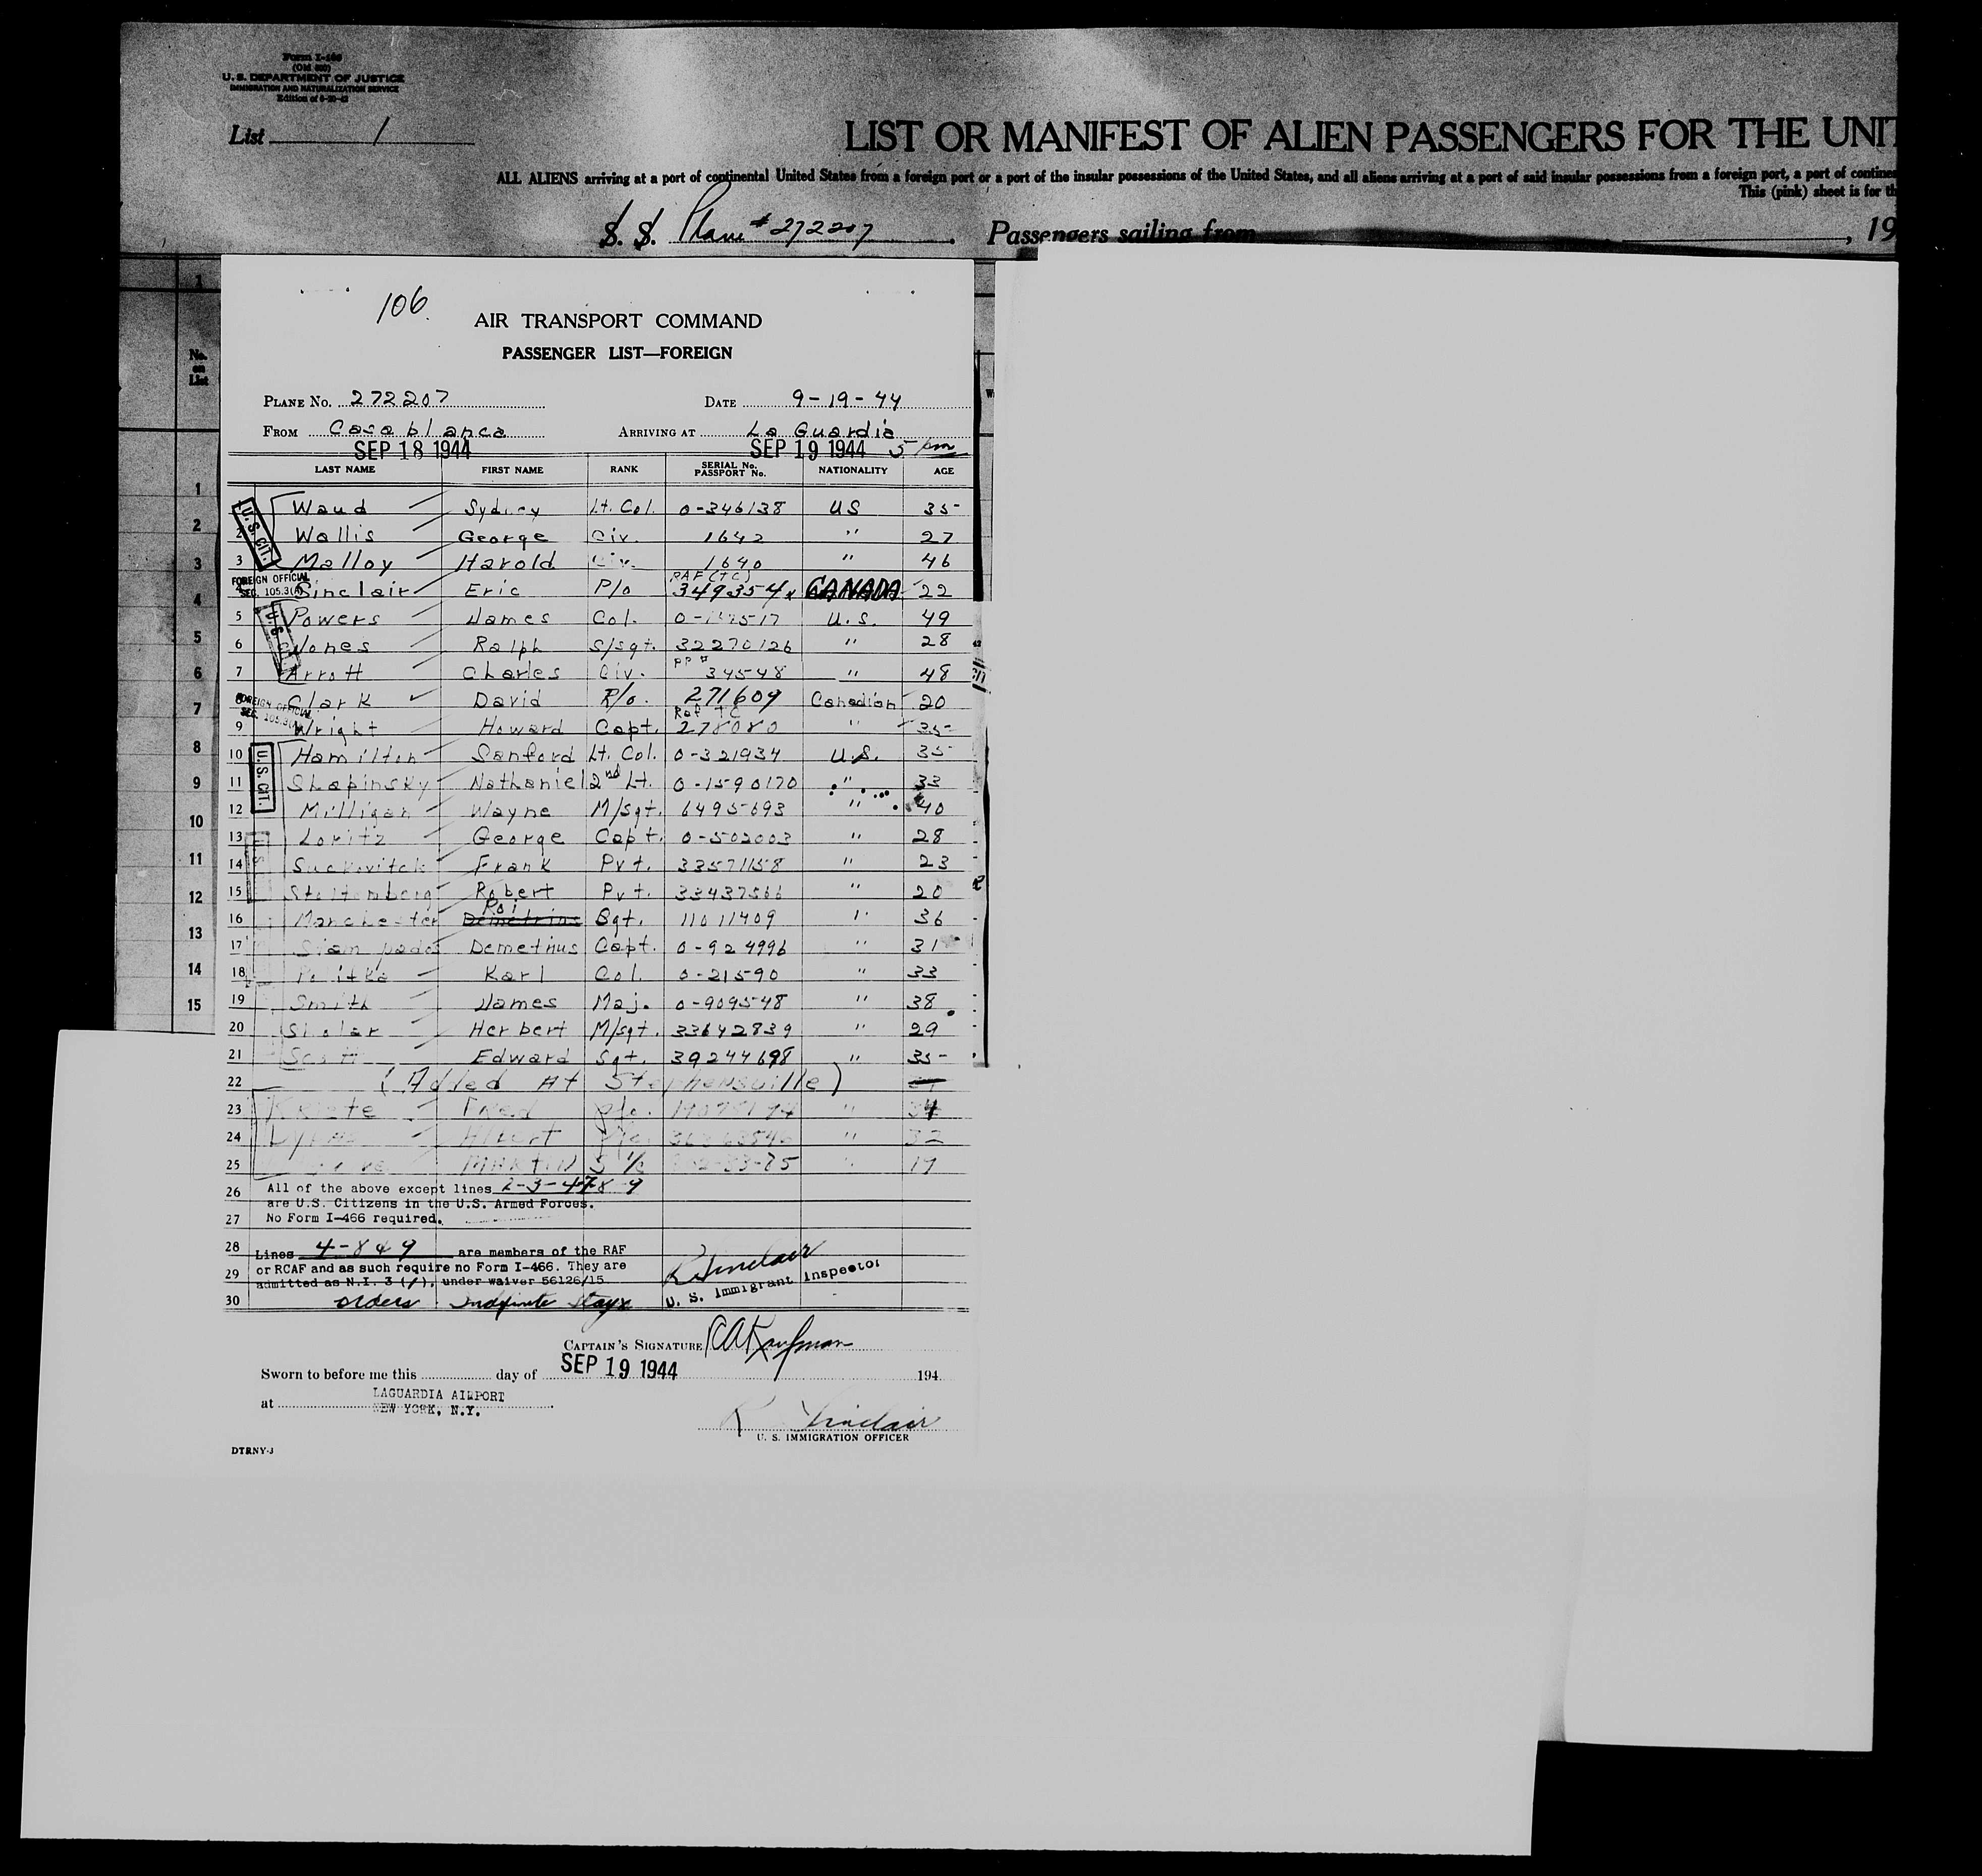 Form I-466
(Old 500)
U. S. DEPARTMENT OF JUSTICE
IMMIGRATION AND NATURALIZATION SERVICE
List 1
LIST OR MANIFEST OF ALIEN PASSENGERS FOR THE UNIT
ALL ALIENS arriving at a port of continental United States from a foreign port or a port of the insular possessions of the United States, and all aliens arriving at a port of said insular possessions from a foreign port, a port of contine
This (pink) sheet is for th
S. S. Plane # 272207 Passengers sailing from , 19
No. on List
106.
AIR TRANSPORT COMMAND
PASSENGER LIST—FOREIGN
PLANE NO. 272207 DATE 9-19-44
FROM Casablanca ARRIVING AT La Guardia
SEP 18 1944 SEP 19 1944 5 pm
LAST NAME FIRST NAME RANK SERIAL NO. PASSPORT NO. NATIONALITY AGE
U. S. CIT.
Waud Sydney Lt. Col. 0-346138 US 35
2 Wallis George Civ. 1642 " 27
3 Malloy Harold Civ. 1640 " 46
RAF (TC)
FOREIGN OFFICIAL SEC. 105.3(A)
Sinclair Eric P/o 349354 CANADA 22
5 Powers James Col. U.S. 49
6 Jones Ralph S/sgt. 32270126 " 28
7 Arrott Charles Civ. PP # 34548 " 48
FOREIGN OFFICIAL SEC. 105.3(A)
8 Clark David R/o. 271609 Canadian 20
Raf TC
9 Wright Howard Capt. 278080 " 35
U. S. CIT.
10 Hamilton Sanford Lt. Col. 0-321934 U.S. 35
11 Shapinsky Nathaniel 2nd Lt. 0-1590170 " 33
12 Milligan Wayne M/Sgt. 6495693 " 40
13 Loritz George Capt. 0-502003 " 28
14 Suckovitch Frank Pvt. 33571158 " 23
15 Stoltenberg Robert Pvt. 33437566 " 20
16 Manchester Demetrius Roi Sgt. 11011409 " 36
17 Demetrius Capt. 0-924996 " 31
18 Politka Karl Col. 0-21590 " 33
19 Smith James Maj. 0-909548 " 38
20 Herbert M/sgt. 33642839 " 29
21 Scott Edward Sgt. 39244698 " 35
22 (Added At Stephensville)
23 Fred Pfc. " 34
24 Albert Pfc. " 32
25 Martin S 1/c 19
26 All of the above except lines 2-3-4-7-8 9
are U.S. Citizens in the U.S. Armed Forces.
27 No Form I-466 required.
28 Lines 4-8 & 9 are members of the RAF
29 or RCAF and as such require no Form I-466. They are
admitted as N.I. 3 (1), under waiver 56126/15
30 orders. Indefinite Stay
R Sinclair
U. S. Immigrant Inspector
CAPTAIN'S SIGNATURE Kaufman
Sworn to before me this day of SEP 19 1944 194
at LAGUARDIA AIRPORT
NEW YORK, N.Y.
R Sinclair
U. S. IMMIGRATION OFFICER
DTRNY-J
1
2
3
4
5
6
7
8
9
10
11
12
13
14
15